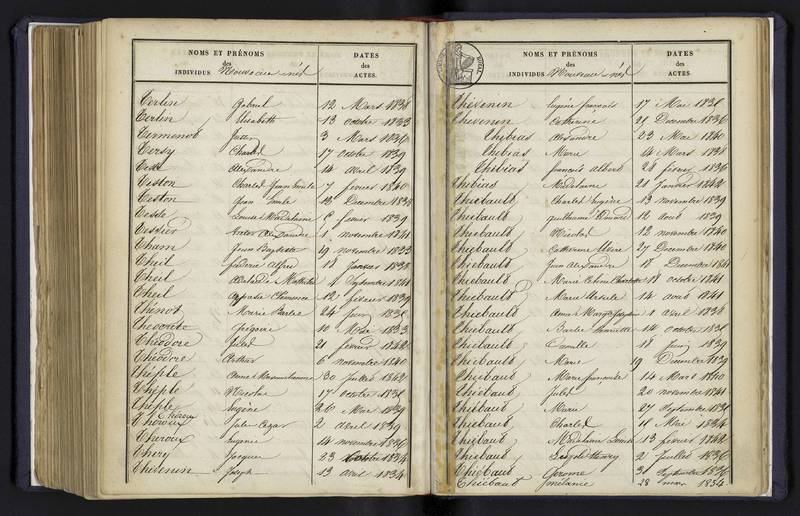 NOMS ET PRÉNOMS
des
INDIVIDUS Nouveau nés
DATES
des
ACTES.
Terlin Gabriel 12 Mars 1838
Terlin Elisabeth 13 octobre 1833
Justin 3 Mars 1836
Tersy Charles 17 octobre 1839
Alexandre 14 avril 1839
Teston Charles Jean Emile 7 fevrier 1840
Teston Jean Emile 12 Decembre 1838
Louise Madelaine fevrier 1839
Tessier Alexandre 1 novembre 1841
Tham Jean Baptiste 19 novembre 1833
Theil fréderic Alfred 18 Janvier 1838
Theil Mathilde 4 Septembre 1841
Theil Clemence 12 fevrier 1839
Thénot Marie Barbe 24 Juin
Gregoire 10 Mai 1833
Théodore Jules 21 fevrier 1842
Théodore Arthur 6 novembre 1840
Thiple Maximilienne 30 Juillet 1842
Thiple Nicolas 17 octobre
Thiple Eugène 26 Mai 1839
Theroux
Theroux Jule Cezar 2 Avril 1839
Theroux Eugenie 14 novembre 1836
Thery Jacques 23 octobre 1834
Thevenin Joseph 13 avril 1834
NOMS ET PRÉNOMS
des
INDIVIDUS Nouveau nés
DATES
des
ACTES.
Thévenin Eugène françois 17 Mai
Thevenin Catherine 21 Decembre 1836
Thibias Alexandre 23 Mai 1840
Thibias Marie 4 Mars 1838
Thibias françois albert 28 fevrier 1836
Thibias Madelaine 21 Janvier 1842
Thiebault Charles Eugène 13 novembre 1839
Thiebault guillaume Edouard 12 aout 1839
Thiebault Nicolas 12 novembre 1840
Thiebault Catherine 27 Decembre 1840
Thiebault Jean Alexandre 18 Decembre 1841
Thiebault Marie Charlotte 18 octobre 1841
Thiebault Marie Ursule 14 avril 1841
Thiebault 1 avril 1838
Thiebault Barbe 14 octobre
Thiebault Camille 18 Juin 1839
Thiebault Marie 19 Decembre 1839
Thiebaut Marie françoise 14 Mars 1840
Thiebaut Jules 20 novembre 1841
Thiebaut Marie 27 Septembre
Thiebaut Charles 11 Mai 1834
Thiebaut Madelaine 13 fevrier 1842
Thiebaut Leopold Henry 21 Juillet 1836
Thiebaut Gerome 3 Septembre 1836
Thiebaut mélanie 28 mars 1834